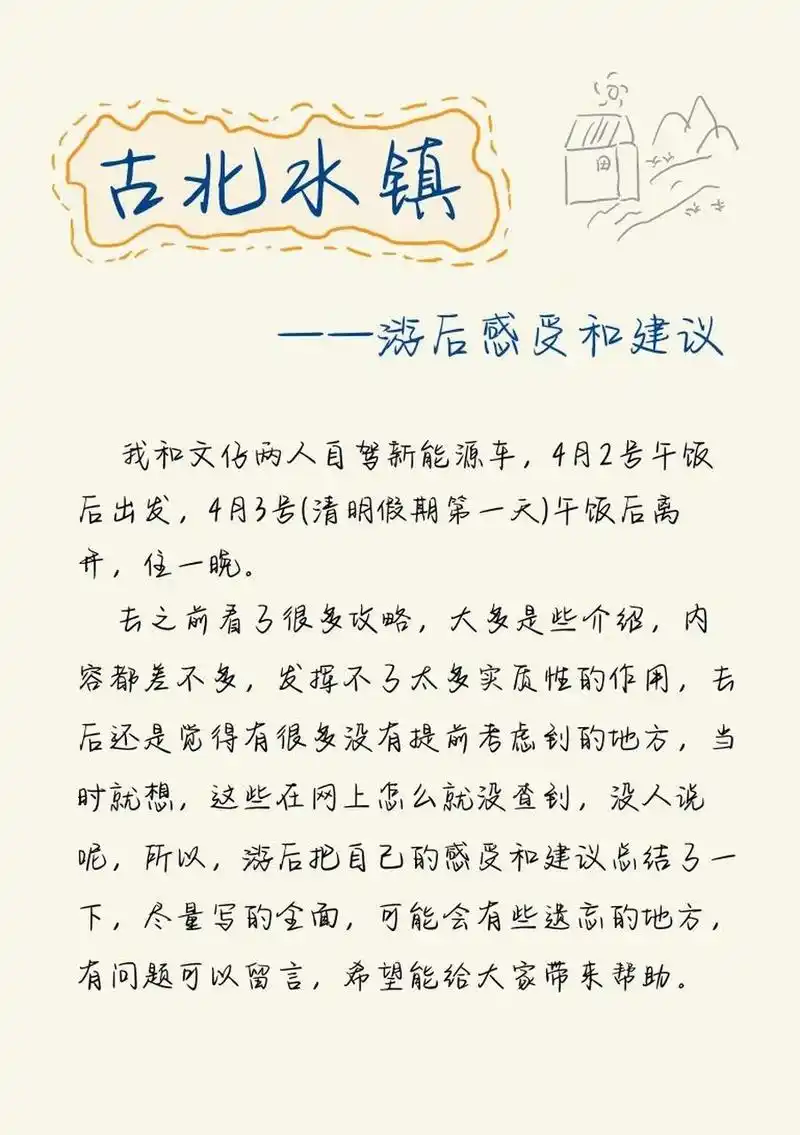 古北水镇
——游后感受和建议
我和文仔两人自驾新能源车，4月2号午饭
后出发，4月3号(清明假期第一天)午饭后离
开，住一晚。
去之前看了很多攻略，大多是些介绍，内
容都差不多，发挥不了太多实质性的作用，去
后还是觉得有很多没有提前考虑到的地方，当
时就想，这些在网上怎么就没查到，没人说
呢，所以，游后把自己的感受和建议总结了一
下，尽量写的全面，可能会有些遗忘的地方，
有问题可以留言，希望能给大家带来帮助。